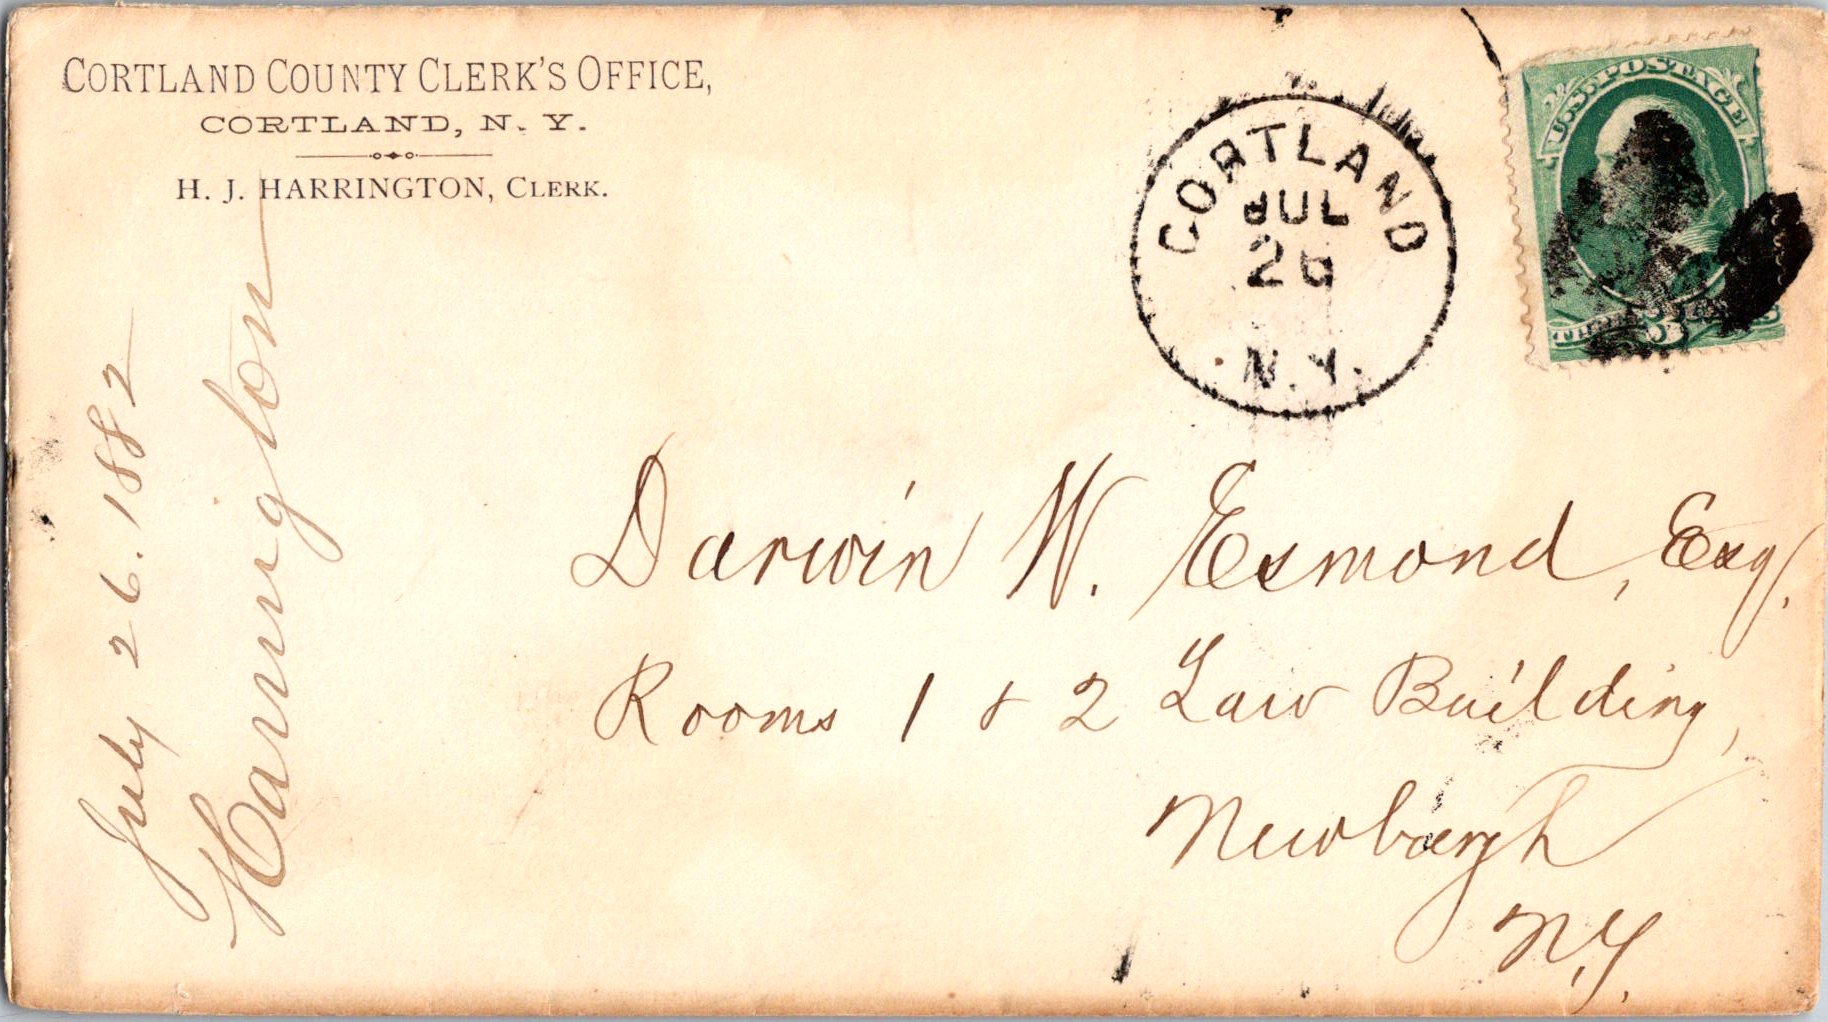 CORTLAND COUNTY CLERK'S OFFICE,
CORTLAND, N. Y.
H. J. HARRINGTON, CLERK.
CORTLAND
JUL
26
N.Y.
U.S. POSTAGE
THREE 3 CENTS
July 26. 1882
Harrington
Darwin W. Esmond, Esq.
Rooms 1 & 2 Law Building,
Newburgh
N.Y.